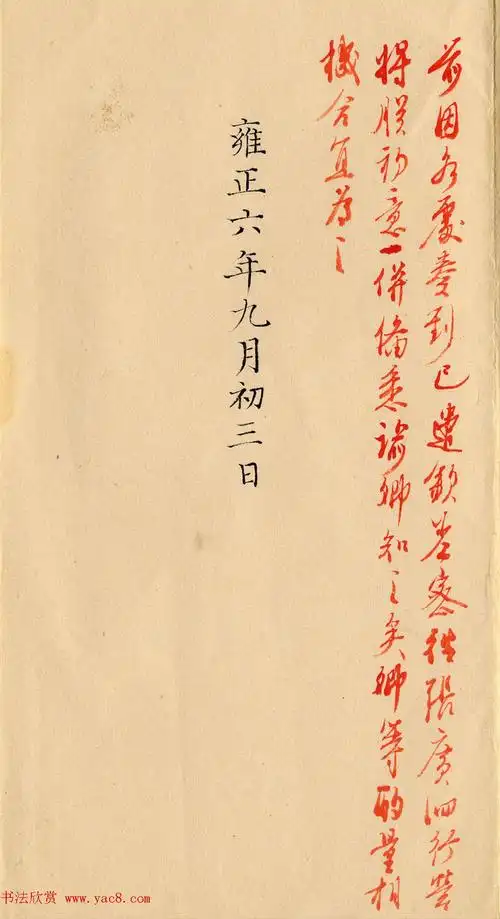 前因各處奏到已遣欽差密往張廣泗行營
將朕初意一併備悉諭卿知之矣卿等酌量相
機合宜為之
雍正六年九月初三日
书法欣赏 www.yac8.com